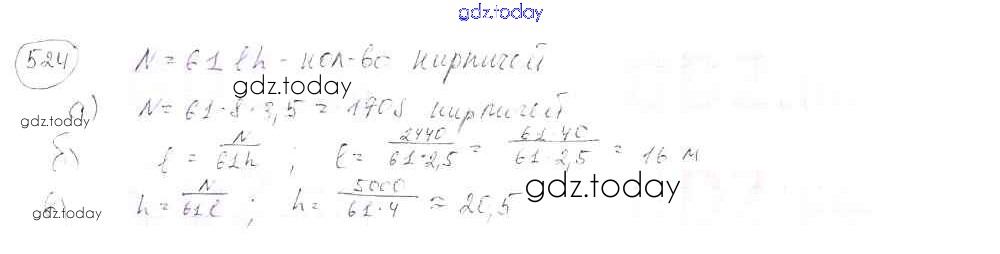 gdz.today
524 N = 61 lh - кол-во кирпичей
gdz.today
а) N = 61 · 8 · 3,5 = 1708 кирпичей
gdz.today
б) l = N/61h ; l = 2440/61·2,5 = 61·40/61·2,5 = 16 м
gdz.today
в) h = N/61l ; h = 5000/61·4 ≈ 20,5
gdz.today